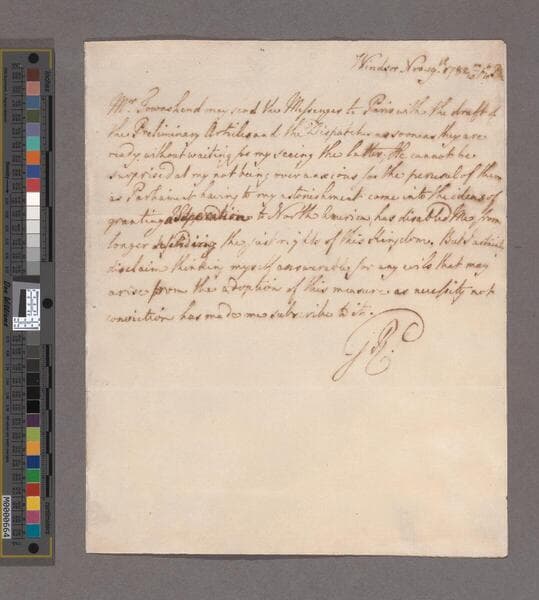 Windsor Novr. 19th. 1782
Mr. Townshend may send the Messenger to Paris with the draft of
the Preliminary Articles and the Dispatches as soon as they are
ready without waiting for my seeing the latter, He cannot be
surprised at my not being over anxious for the perusal of them
as Parliament having to my astonishment come into the ideas of
granting a Separation to North America has disabled Me from
longer defending the just rights of this Kingdom. But I certainly
disclaim thinking myself answerable for any evils that may
arise from the adoption of this measure as necessity not
conviction has made me subscribe to it.
GR.
M0000664